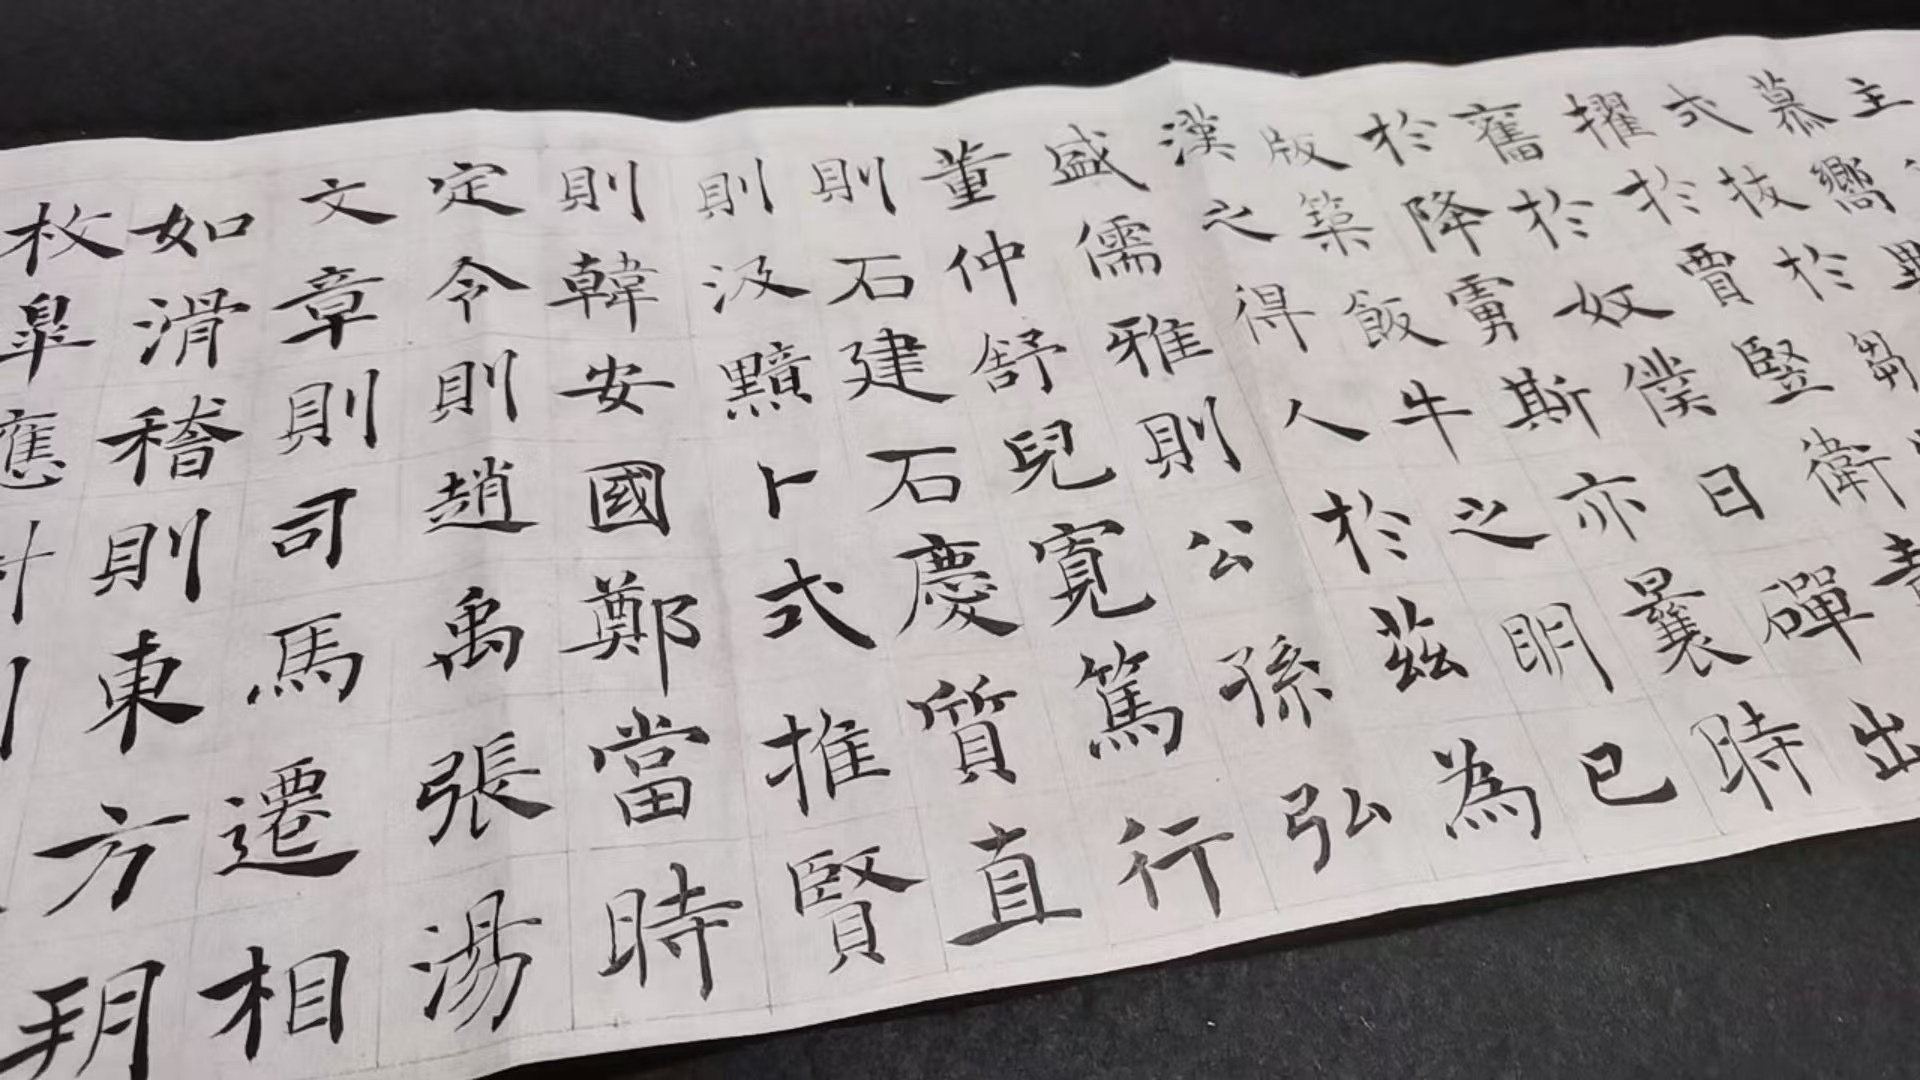 主
慕嚮異
式拔於芻
擢於賈豎衛青
奮於奴僕日磾出
於降虜斯亦曩時
版築飯牛之明已
漢之得人於茲為
盛儒雅則公孫弘
董仲舒兒寬篤行
則石建石慶質直
則汲黯卜式推賢
則韓安國鄭當時
定令則趙禹張湯
文章則司馬遷相
如滑稽則東方朔
枚皋應對